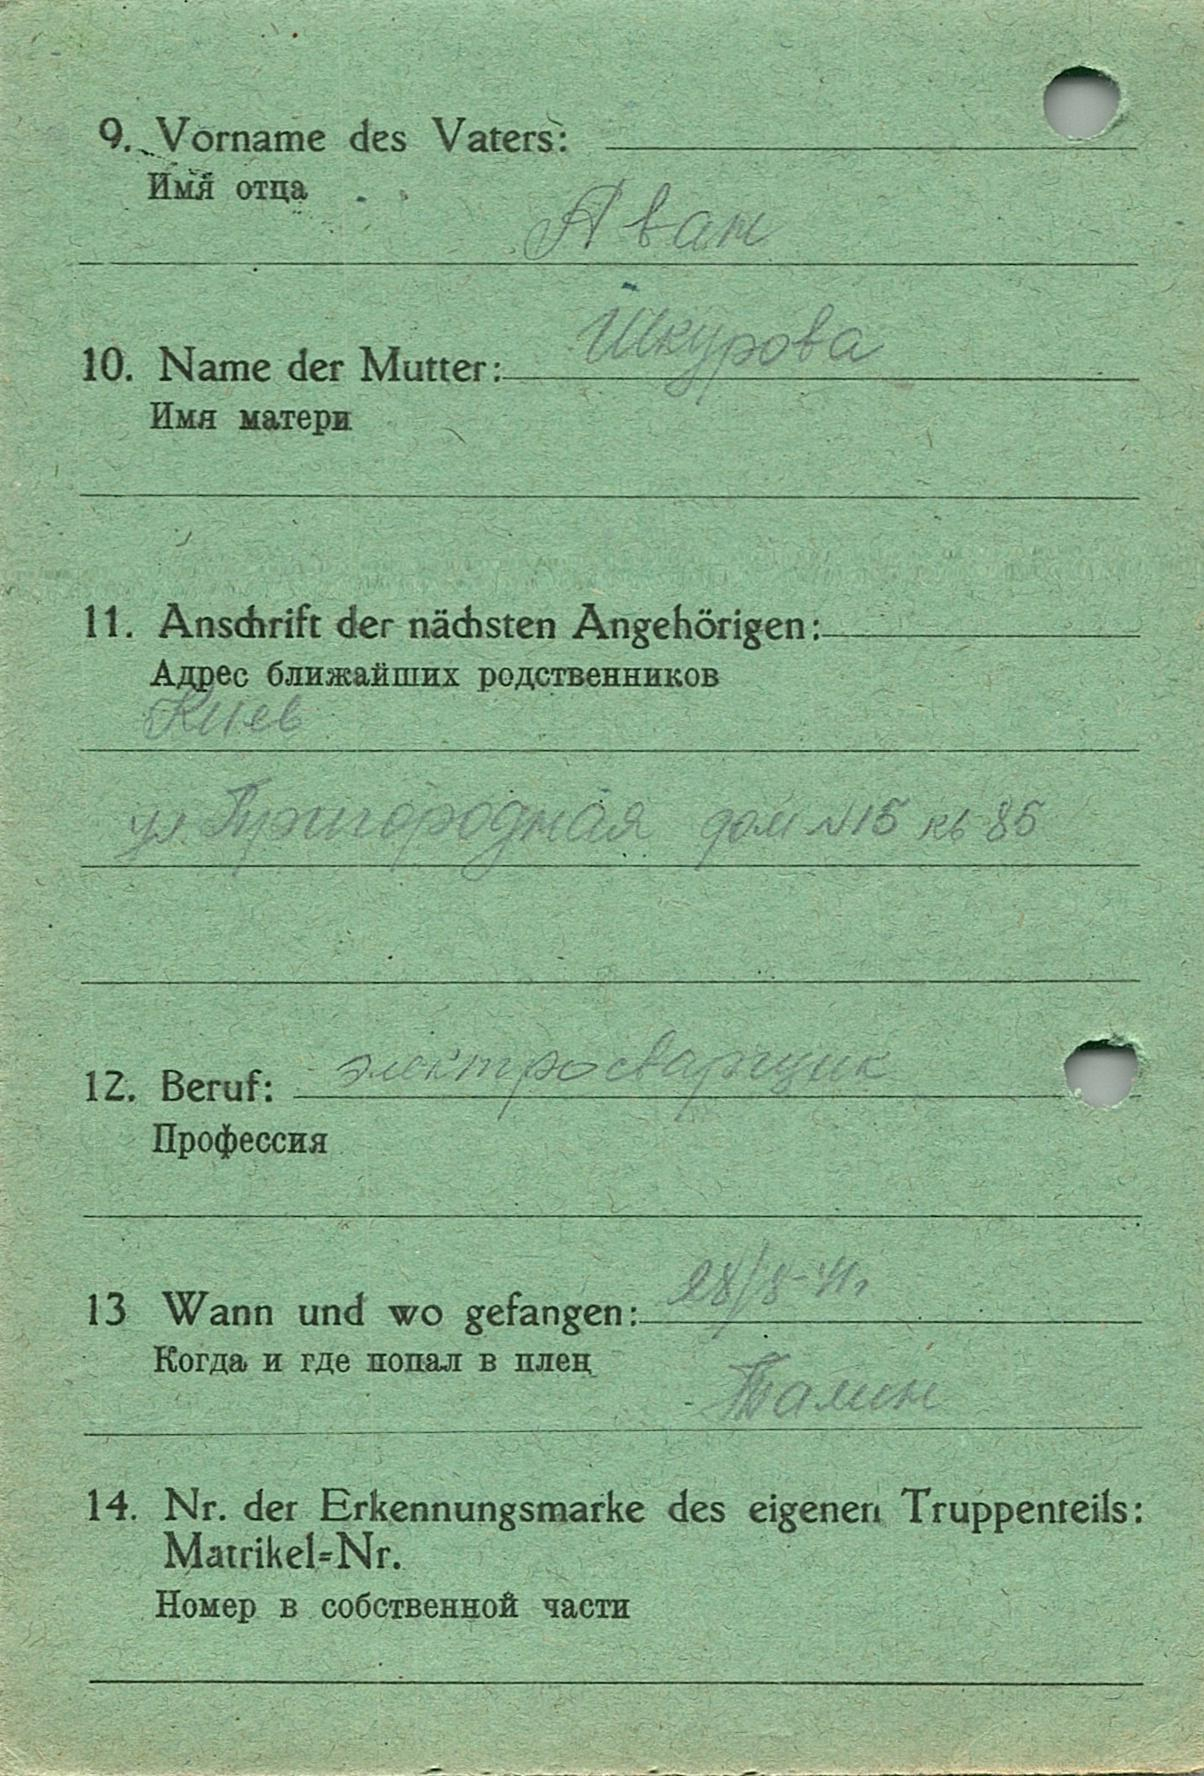 9. Vorname des Vaters:
Имя отца
Аван
Шкурова
10. Name der Mutter:
Имя матери
11. Anschrift der nächsten Angehörigen:
Адрес ближайших родственников
Киев
ул. дом №15 кв 85
12. Beruf: электросварщик
Профессия
13 Wann und wo gefangen: 28/8-41г
Когда и где попал в плен
Талин
14. Nr. der Erkennungsmarke des eigenen Truppenteils:
Matrikel=Nr.
Номер в собственной части